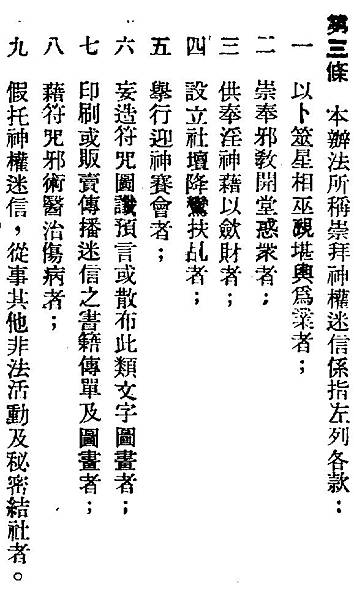 第三條　本辦法所稱崇拜神權迷信係指左列各款；
一　以卜筮星相巫覡堪輿爲業者；
二　崇奉邪敎開堂惑衆者；
三　供奉淫神藉以斂財者；
四　設立社壇降鸞扶乩者；
五　舉行迎神賽會者；
六　妄造符咒圖讖預言或散布此類文字圖畫者；
七　印刷或販賣傳播迷信之書籍傳單及圖畫者；
八　藉符咒邪術醫治傷病者；
九　假托神權迷信，從事其他非法活動及秘密結社者。